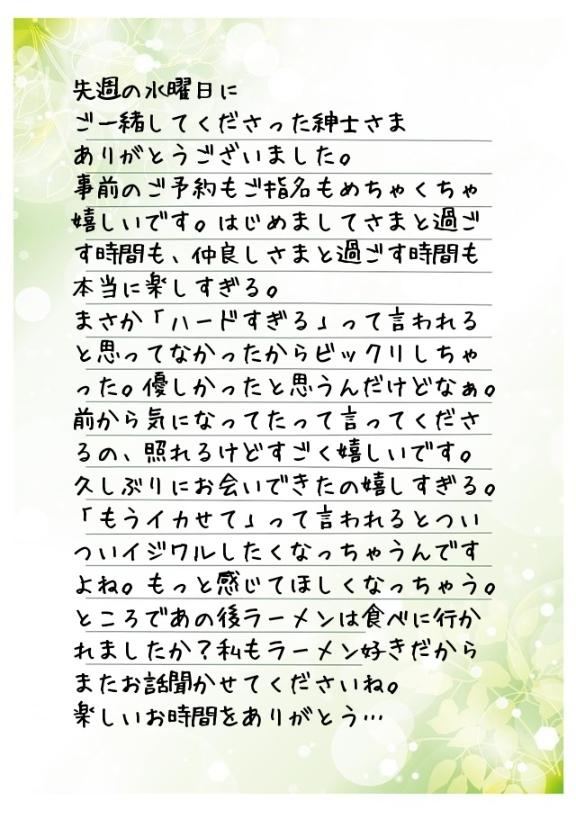 先週の水曜日に
ご一緒してくださった紳士さま
ありがとうございました。
事前のご予約もご指名もめちゃくちゃ
嬉しいです。はじめましてさまと過ご
す時間も、仲良しさまと過ごす時間も
本当に楽しすぎる。
まさか「ハードすぎる」って言われる
と思ってなかったからビックリしちゃ
った。優しかったと思うんだけどなぁ。
前から気になってたって言ってくださ
るの、照れるけどすごく嬉しいです。
久しぶりにお会いできたの嬉しすぎる。
「もうイカせて」って言われるとつい
ついイジワルしたくなっちゃうんです
よね。もっと感じてほしくなっちゃう。
ところであの後ラーメンは食べに行か
れましたか？私もラーメン好きだから
またお話聞かせてくださいね。
楽しいお時間をありがとう…